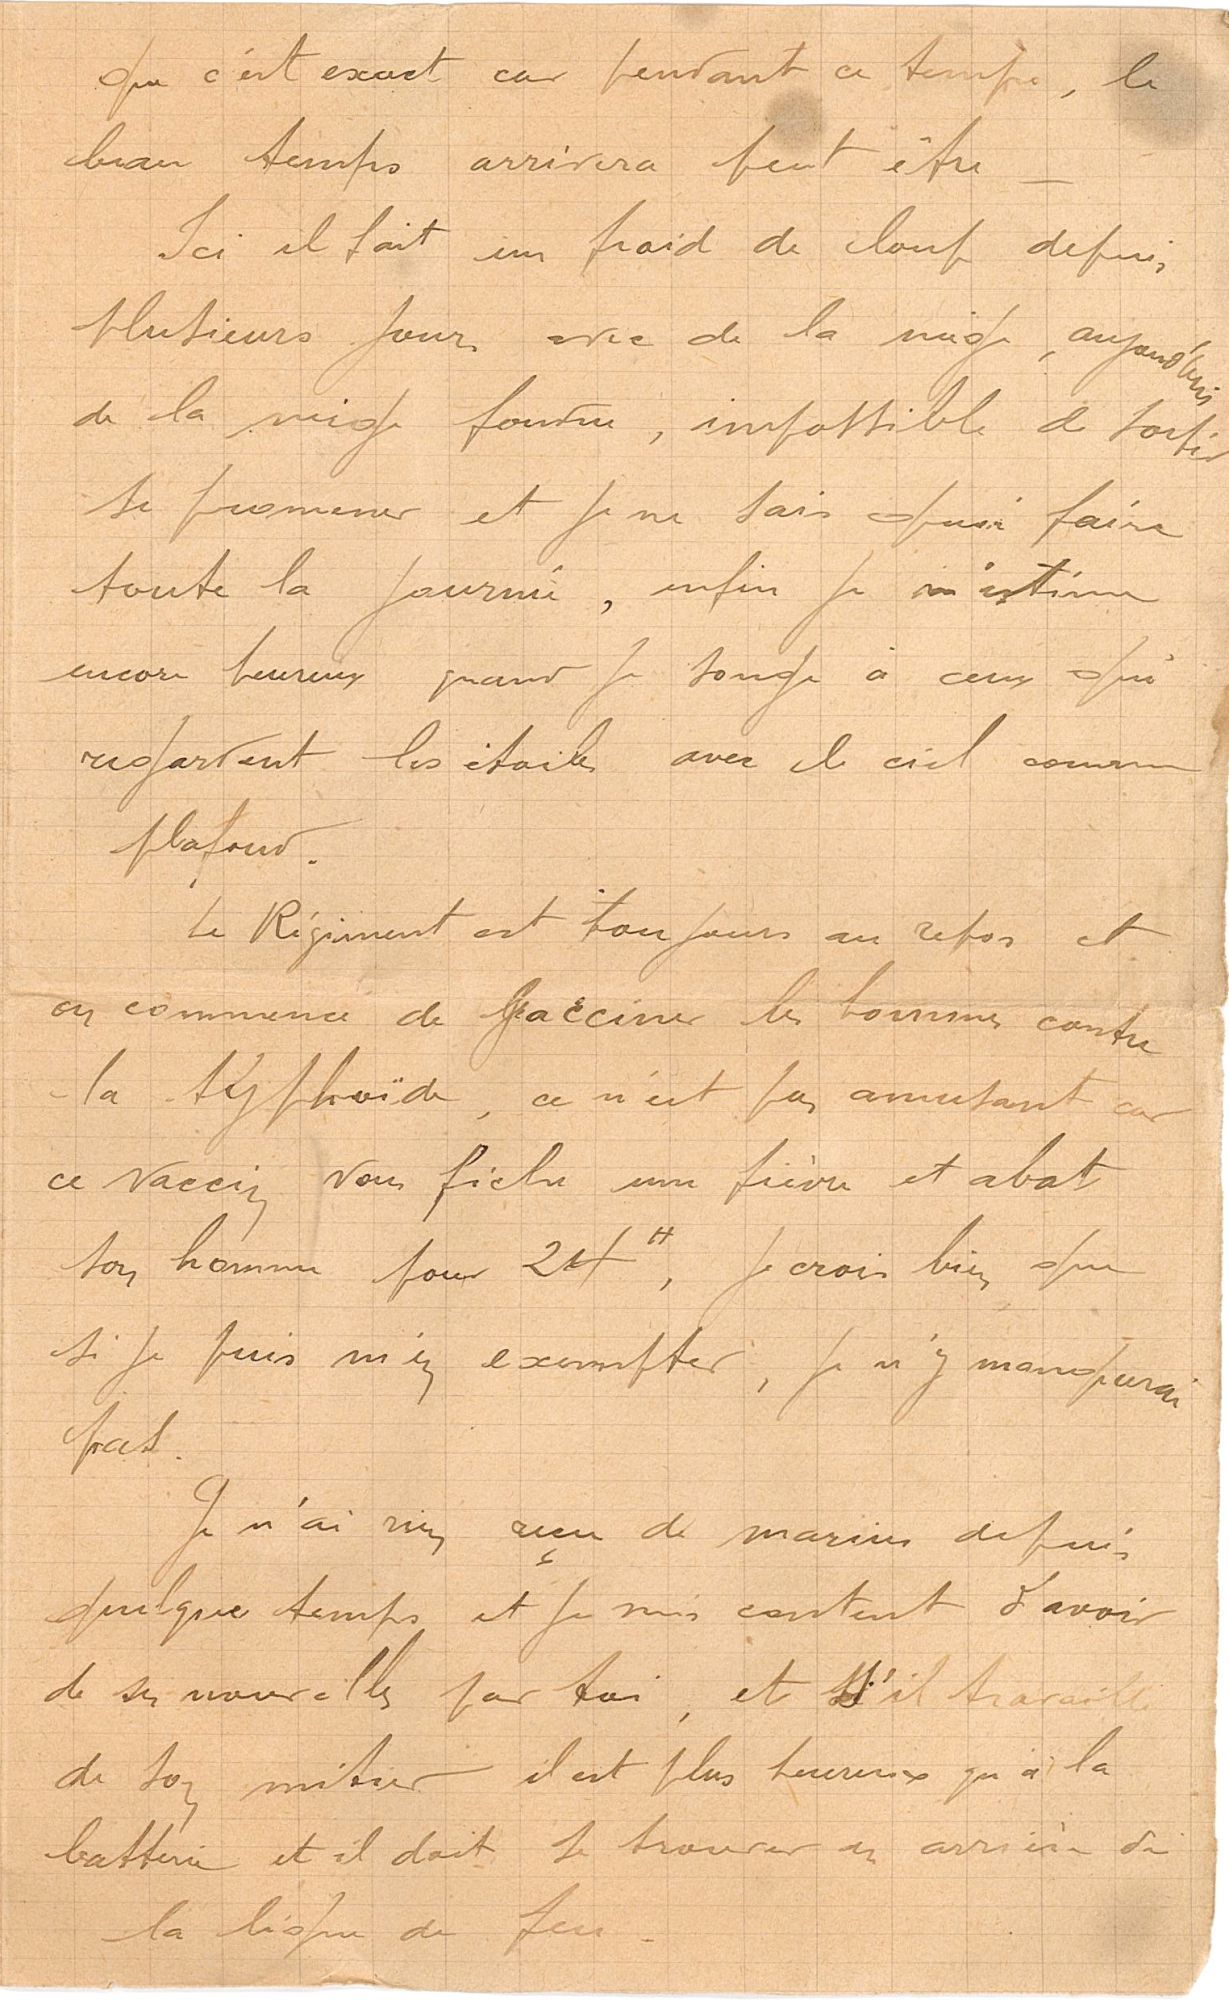 que c'est exact car pendant ce temps, le
beau temps arrivera peut être —
Ici il fait un froid de loup depuis
plusieurs jours avec de la neige, aujourd'hui
de la neige fondue, impossible de sortir
se promener et je ne sais quoi faire
toute la journée, enfin je m'estime
encore heureux quand je songe à ceux qui
regardent les étoiles avec le ciel comme
plafond.
Le Régiment est toujours au repos et
on commence de vacciner les hommes contre
la typhoïde, ce n'est pas amusant car
ce vaccin vous fiche une fièvre et abat
son homme pour 24H, je crois bien que
si je puis m'en exempter, je n'y manquerai
pas.
Je n'ai rien reçu de marius depuis
quelque temps et je suis content d'avoir
de ses nouvelles par toi, et s'il travaille
de son métier il est plus heureux qu'à la
batterie et il doit se trouver en arrière de
la ligne de feu.